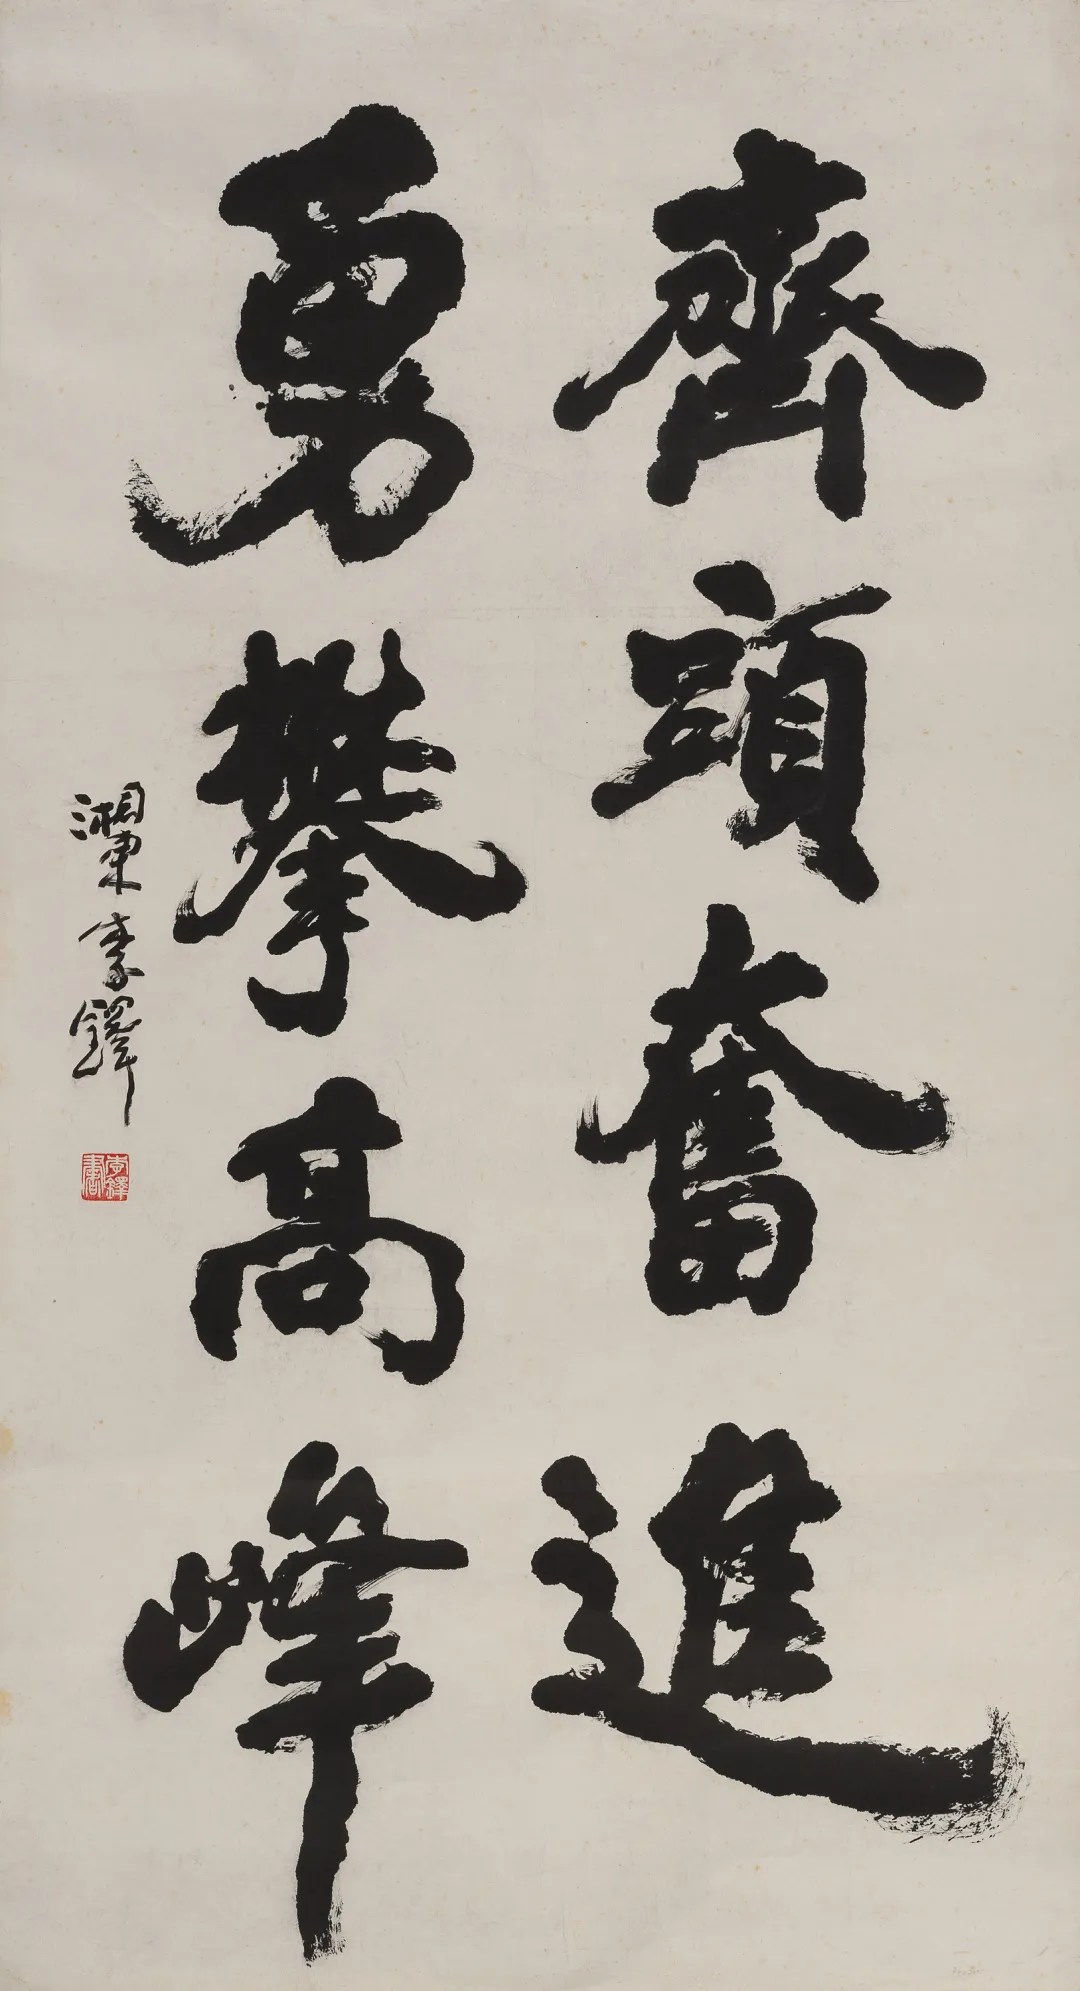 齊頭奮進
勇攀高峰
湘東李鐸
李鐸書